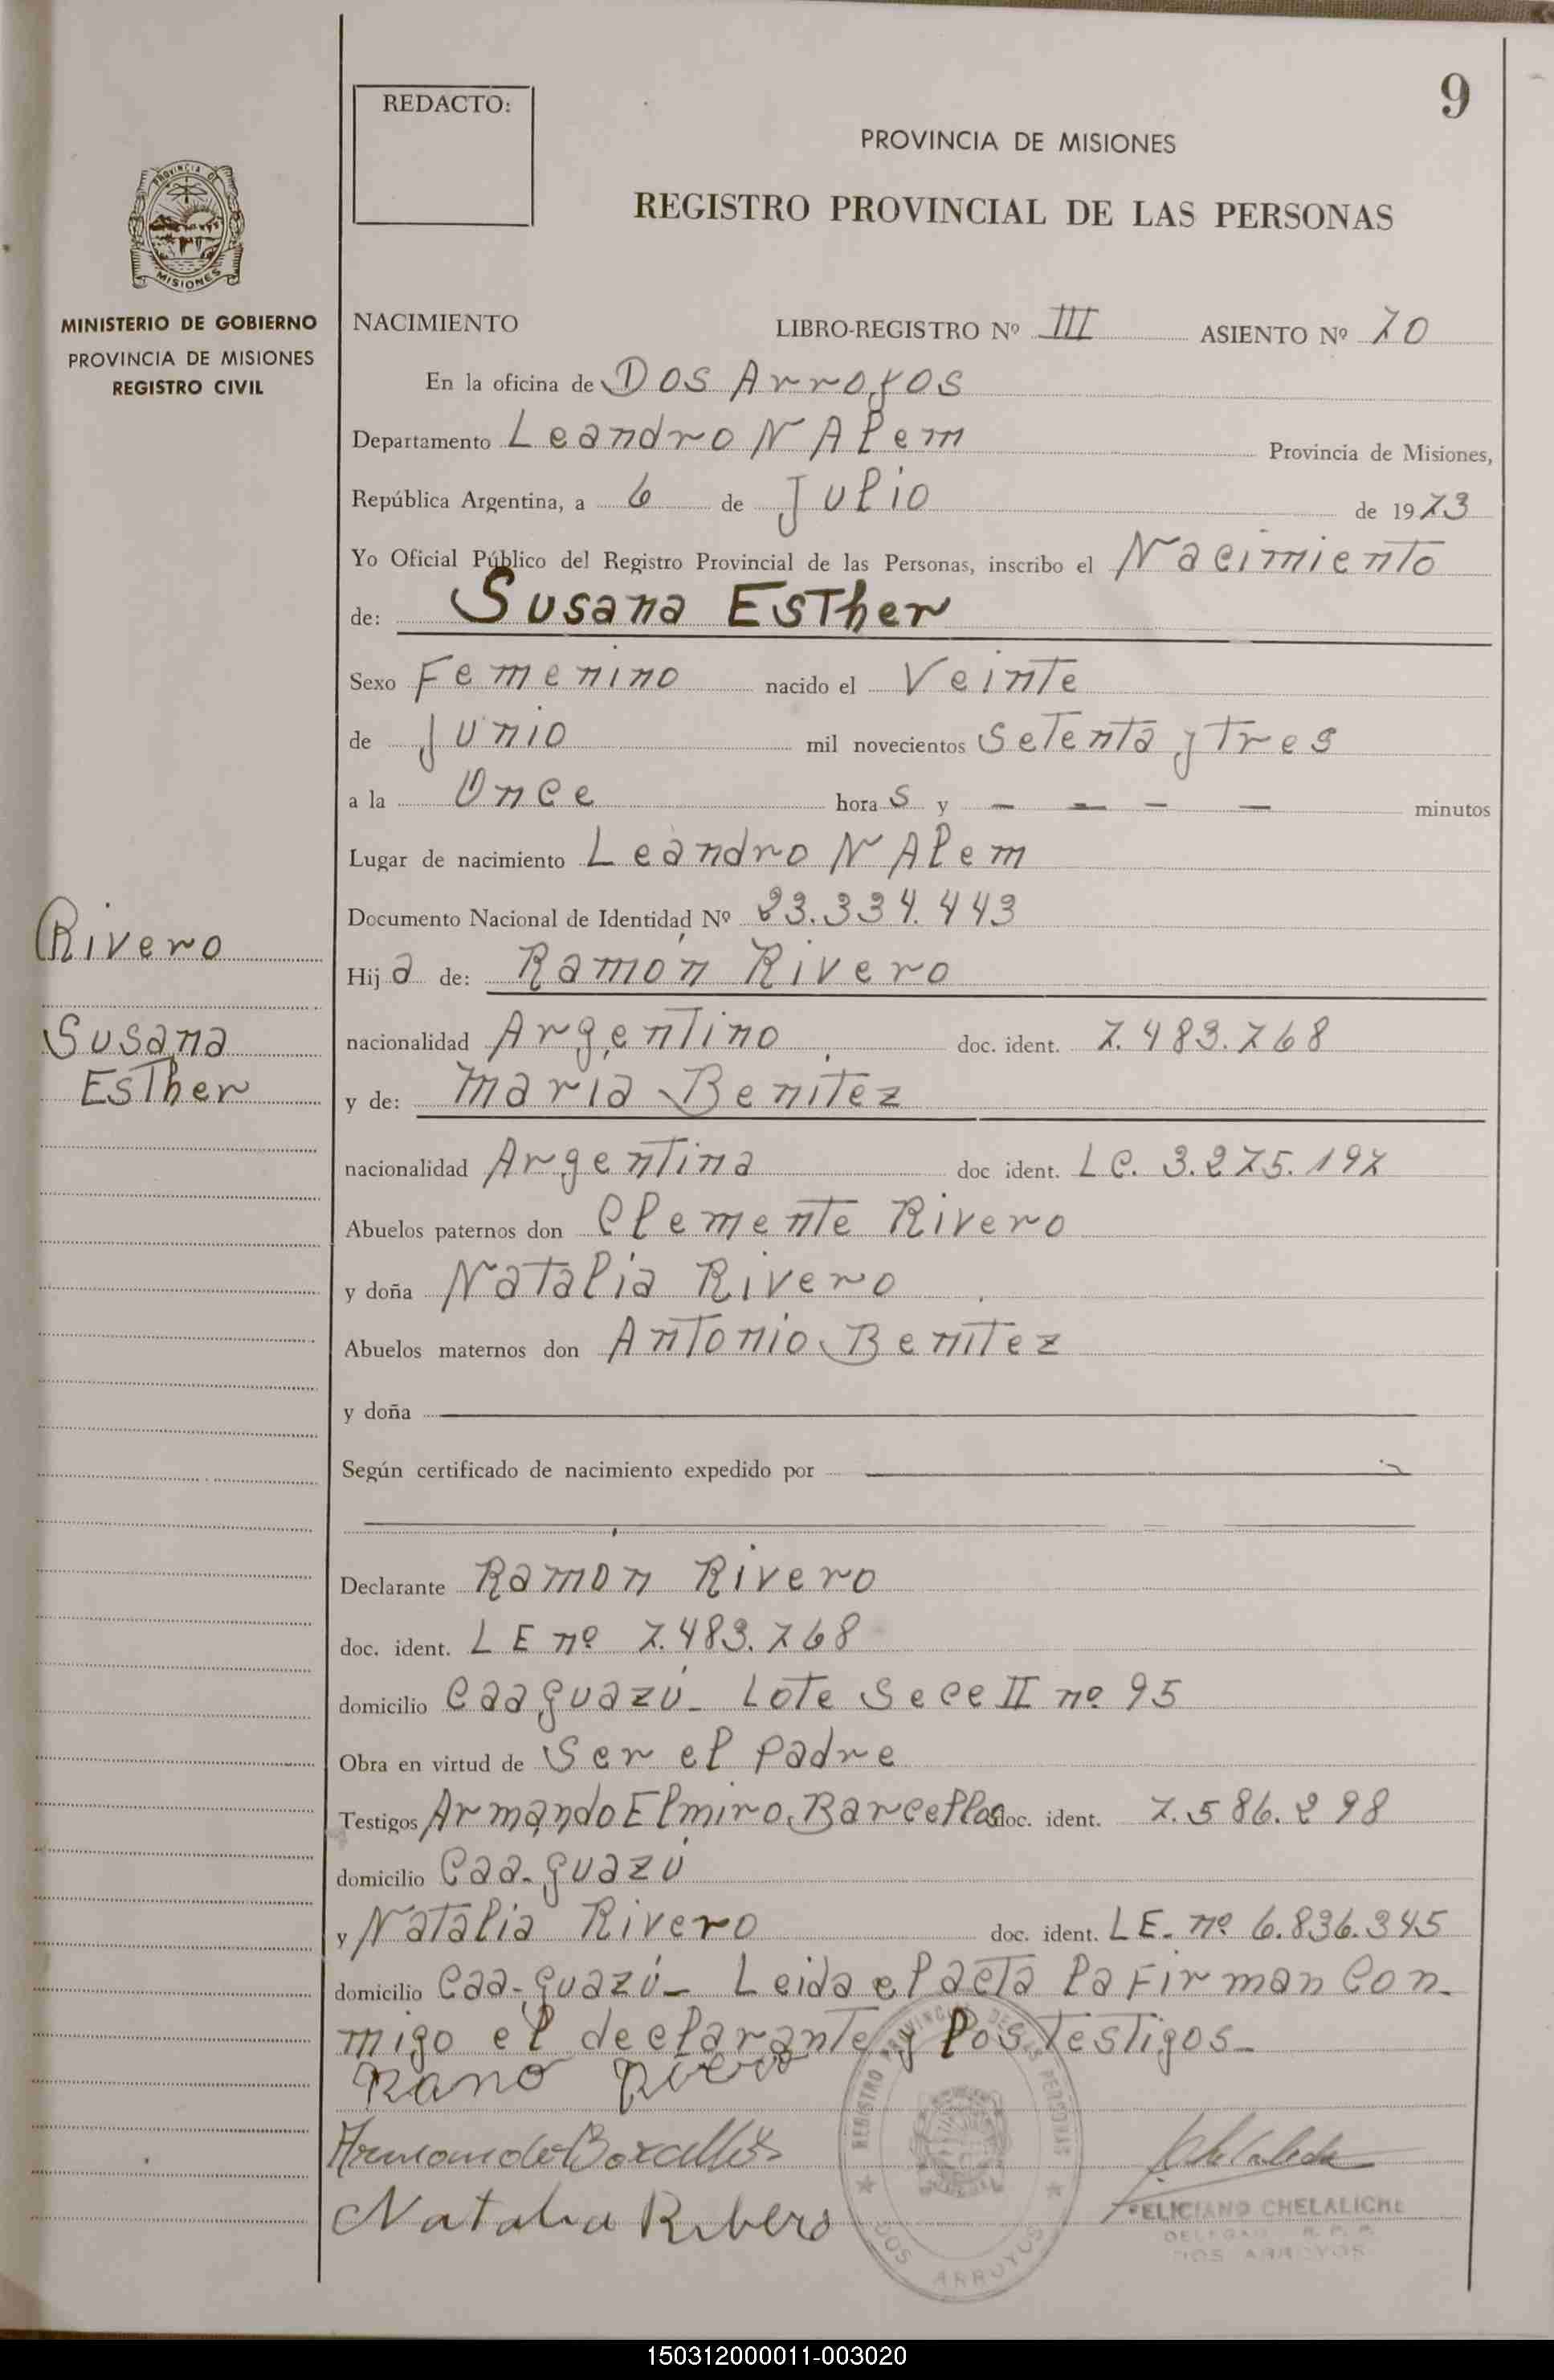 9
REDACTO:
PROVINCIA DE MISIONES
REGISTRO PROVINCIAL DE LAS PERSONAS
PROVINCIA DE
MISIONES
MINISTERIO DE GOBIERNO
PROVINCIA DE MISIONES
REGISTRO CIVIL
NACIMIENTO LIBRO-REGISTRO Nº III ASIENTO Nº 70
En la oficina de Dos Arroyos
Departamento Leandro N Alem Provincia de Misiones,
República Argentina, a 6 de Julio de 1973
Yo Oficial Público del Registro Provincial de las Personas, inscribo el Nacimiento
de: Susana Esther
Sexo Femenino nacido el Veinte
de Junio mil novecientos setenta y tres
a la Once hora s y – – – – minutos
Lugar de nacimiento Leandro N Alem
Documento Nacional de Identidad Nº 23.334.443
Rivero
Hij a de: Ramón Rivero
Susana
Esther
nacionalidad Argentino doc. ident. 7.483.768
y de: Maria Benitez
nacionalidad Argentina doc ident. LC. 3.275.197
Abuelos paternos don Clemente Rivero
y doña Natalia Rivero
Abuelos maternos don Antonio Benitez
y doña
Según certificado de nacimiento expedido por
Declarante Ramón Rivero
doc. ident. L E nº 7.483.768
domicilio Caaguazú- Lote Secc II nº 95
Obra en virtud de Ser el padre
Testigos Armando Elmiro Barcellos doc. ident. 7.586.298
domicilio Caa-guazú
y Natalia Rivero doc. ident. LE. nº 6.836.345
domicilio Caa-guazú- Leida el acta la Firman Con-
migo el declarante y los testigos-
Ramo Rivero
Armando Barcellos
Natalia Ribero
REGISTRO PROVINCIAL DE LAS PERSONAS
DOS ARROYOS
FELICIANO CHELALICHE
DELEGADO R. P. P.
DOS ARROYOS
150312000011-003020